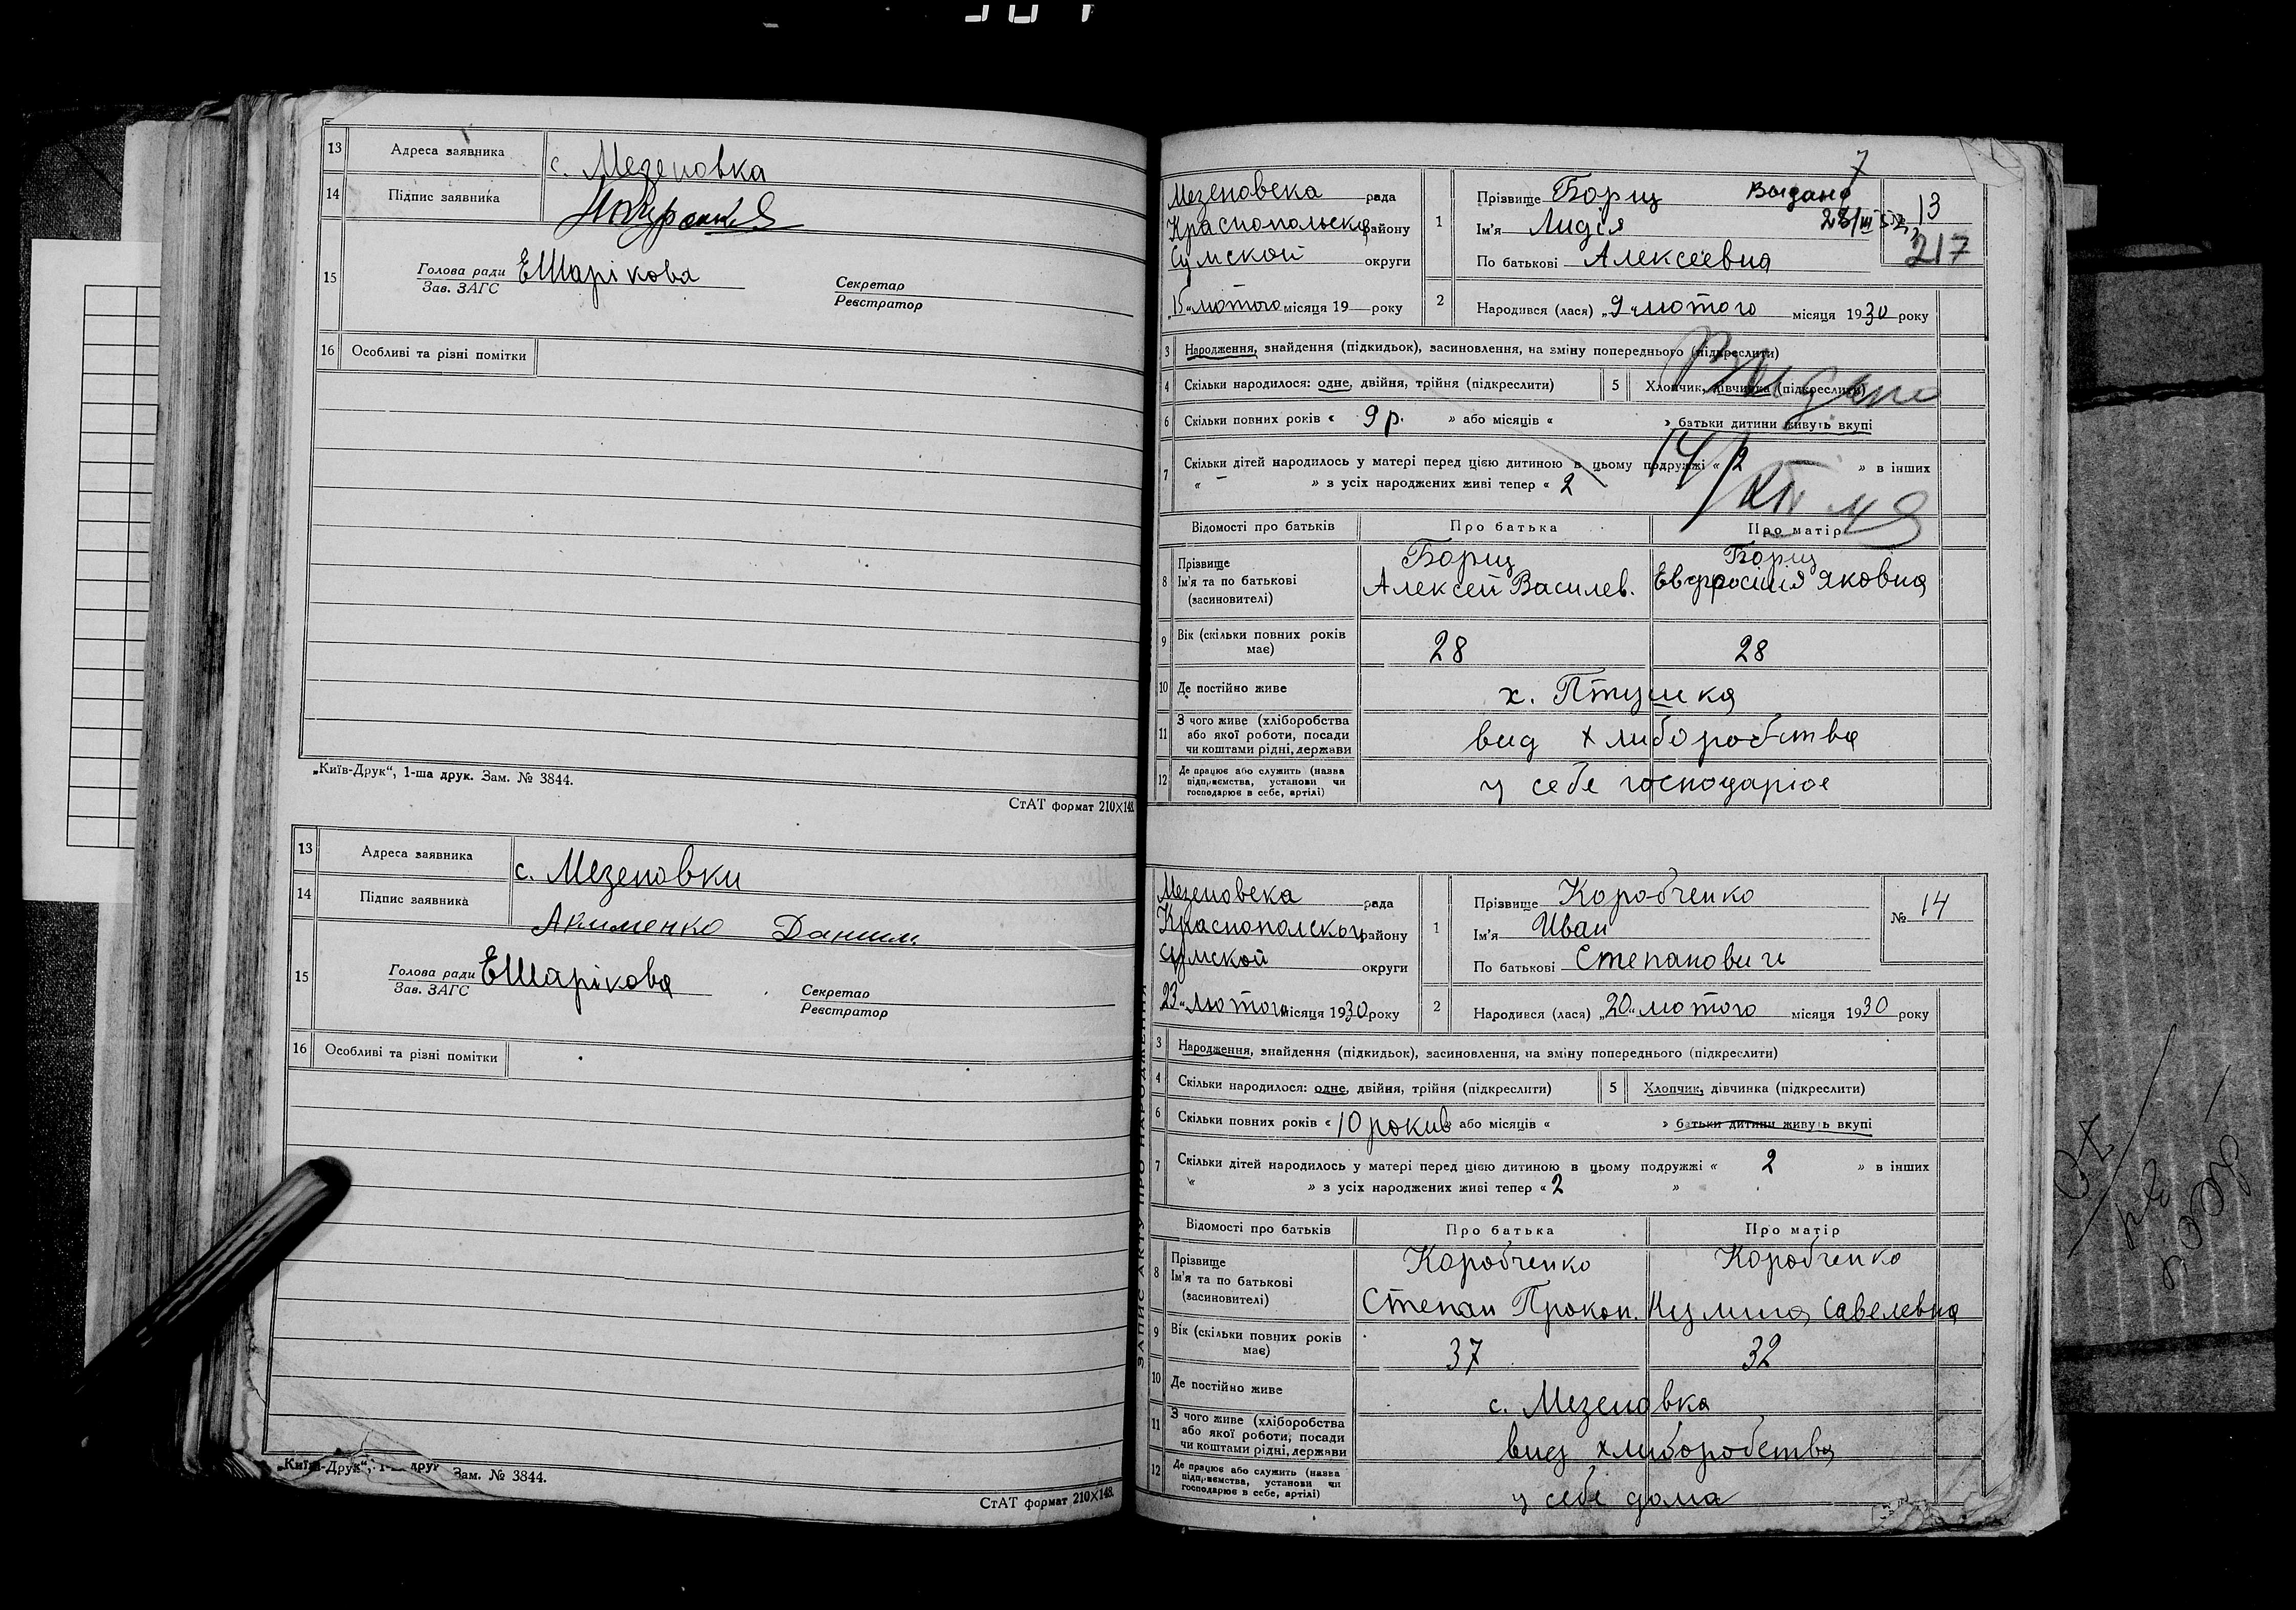 13 Адреса заявника с. Мезеновка
14 Підпис заявника
15 Голова ради ЕШарікова Секретар
Зав. ЗАГС Реєстратор
16 Особливі та різні помітки
„Київ-Друк“, 1-ша друк. Зам. № 3844.
СтАТ формат 210×148.
13 Адреса заявника с. Мезеновки
14 Підпис заявника Акименко Данил
15 Голова ради ЕШарікова Секретар
Зав. ЗАГС Реєстратор
16 Особливі та різні помітки
„Київ-Друк“, 1-ша друк. Зам. № 3844.
СтАТ формат 210×148.
ЗАПИС АКТУ ПРО НАРОДЖЕННЯ
7
Мезеновска рада 1 Прізвище Борщ Выдано № 13
Краснопольску району Ім'я Лидія 28/III 217
Сумской округи По батькові Алексеевна
„15“ лютого місяця 19 року 2 Народився (лася) „9“ лютого місяця 1930 року
3 Народження, знайдення (підкидьок), засиновлення, на зміну попереднього (підкреслити)
4 Скільки народилося: одне, двійня, трійня (підкреслити) 5 Хлопчик, дівчинка (підкреслити)
Выдано
6 Скільки повних років « 9 р. » або місяців « » батьки дитини живуть вкупі
7 Скільки дітей народилось у матері перед цією дитиною в цьому подружжі « 2 » в інших
« - » з усіх народжених живі тепер « 2
14/
Відомості про батьків Про батька Про матір
8 Прізвище Борщ Борщ
Ім'я та по батькові Алексей Василев. Евфросиния Яковна
(засиновителі)
9 Вік (скільки повних років має) 28 28
10 Де постійно живе х. Птушка
11 З чого живе (хліборобства або якої роботи, посади чи коштами рідні, держави вид хлиборобства
12 Де працює або служить (назва підприємства, установи чи господарює в себе, артілі) у себе господаріое
Мезеновска рада 1 Прізвище Коробченко № 14
Краснополском району Ім'я Иван
Сумской округи По батькові Степанович
„23“ лютого місяця 1930 року 2 Народився (лася) „20“ лютого місяця 1930 року
3 Народження, знайдення (підкидьок), засиновлення, на зміну попереднього (підкреслити)
4 Скільки народилося: одне, двійня, трійня (підкреслити) 5 Хлопчик, дівчинка (підкреслити)
6 Скільки повних років « 10 рокив » або місяців « » батьки дитини живуть вкупі
7 Скільки дітей народилось у матері перед цією дитиною в цьому подружжі « 2 » в інших
« » з усіх народжених живі тепер « 2 »
Відомості про батьків Про батька Про матір
8 Прізвище Коробченко Коробченко
Ім'я та по батькові Степан Прокоп. Савелевна
(засиновителі)
9 Вік (скільки повних років має) 37 32
10 Де постійно живе с. Мезеновка
11 З чого живе (хліборобства або якої роботи, посади чи коштами рідні, держави вид хлиборобства
12 Де працює або служить (назва підприємства, установи чи господарює в себе, артілі) у себе дома